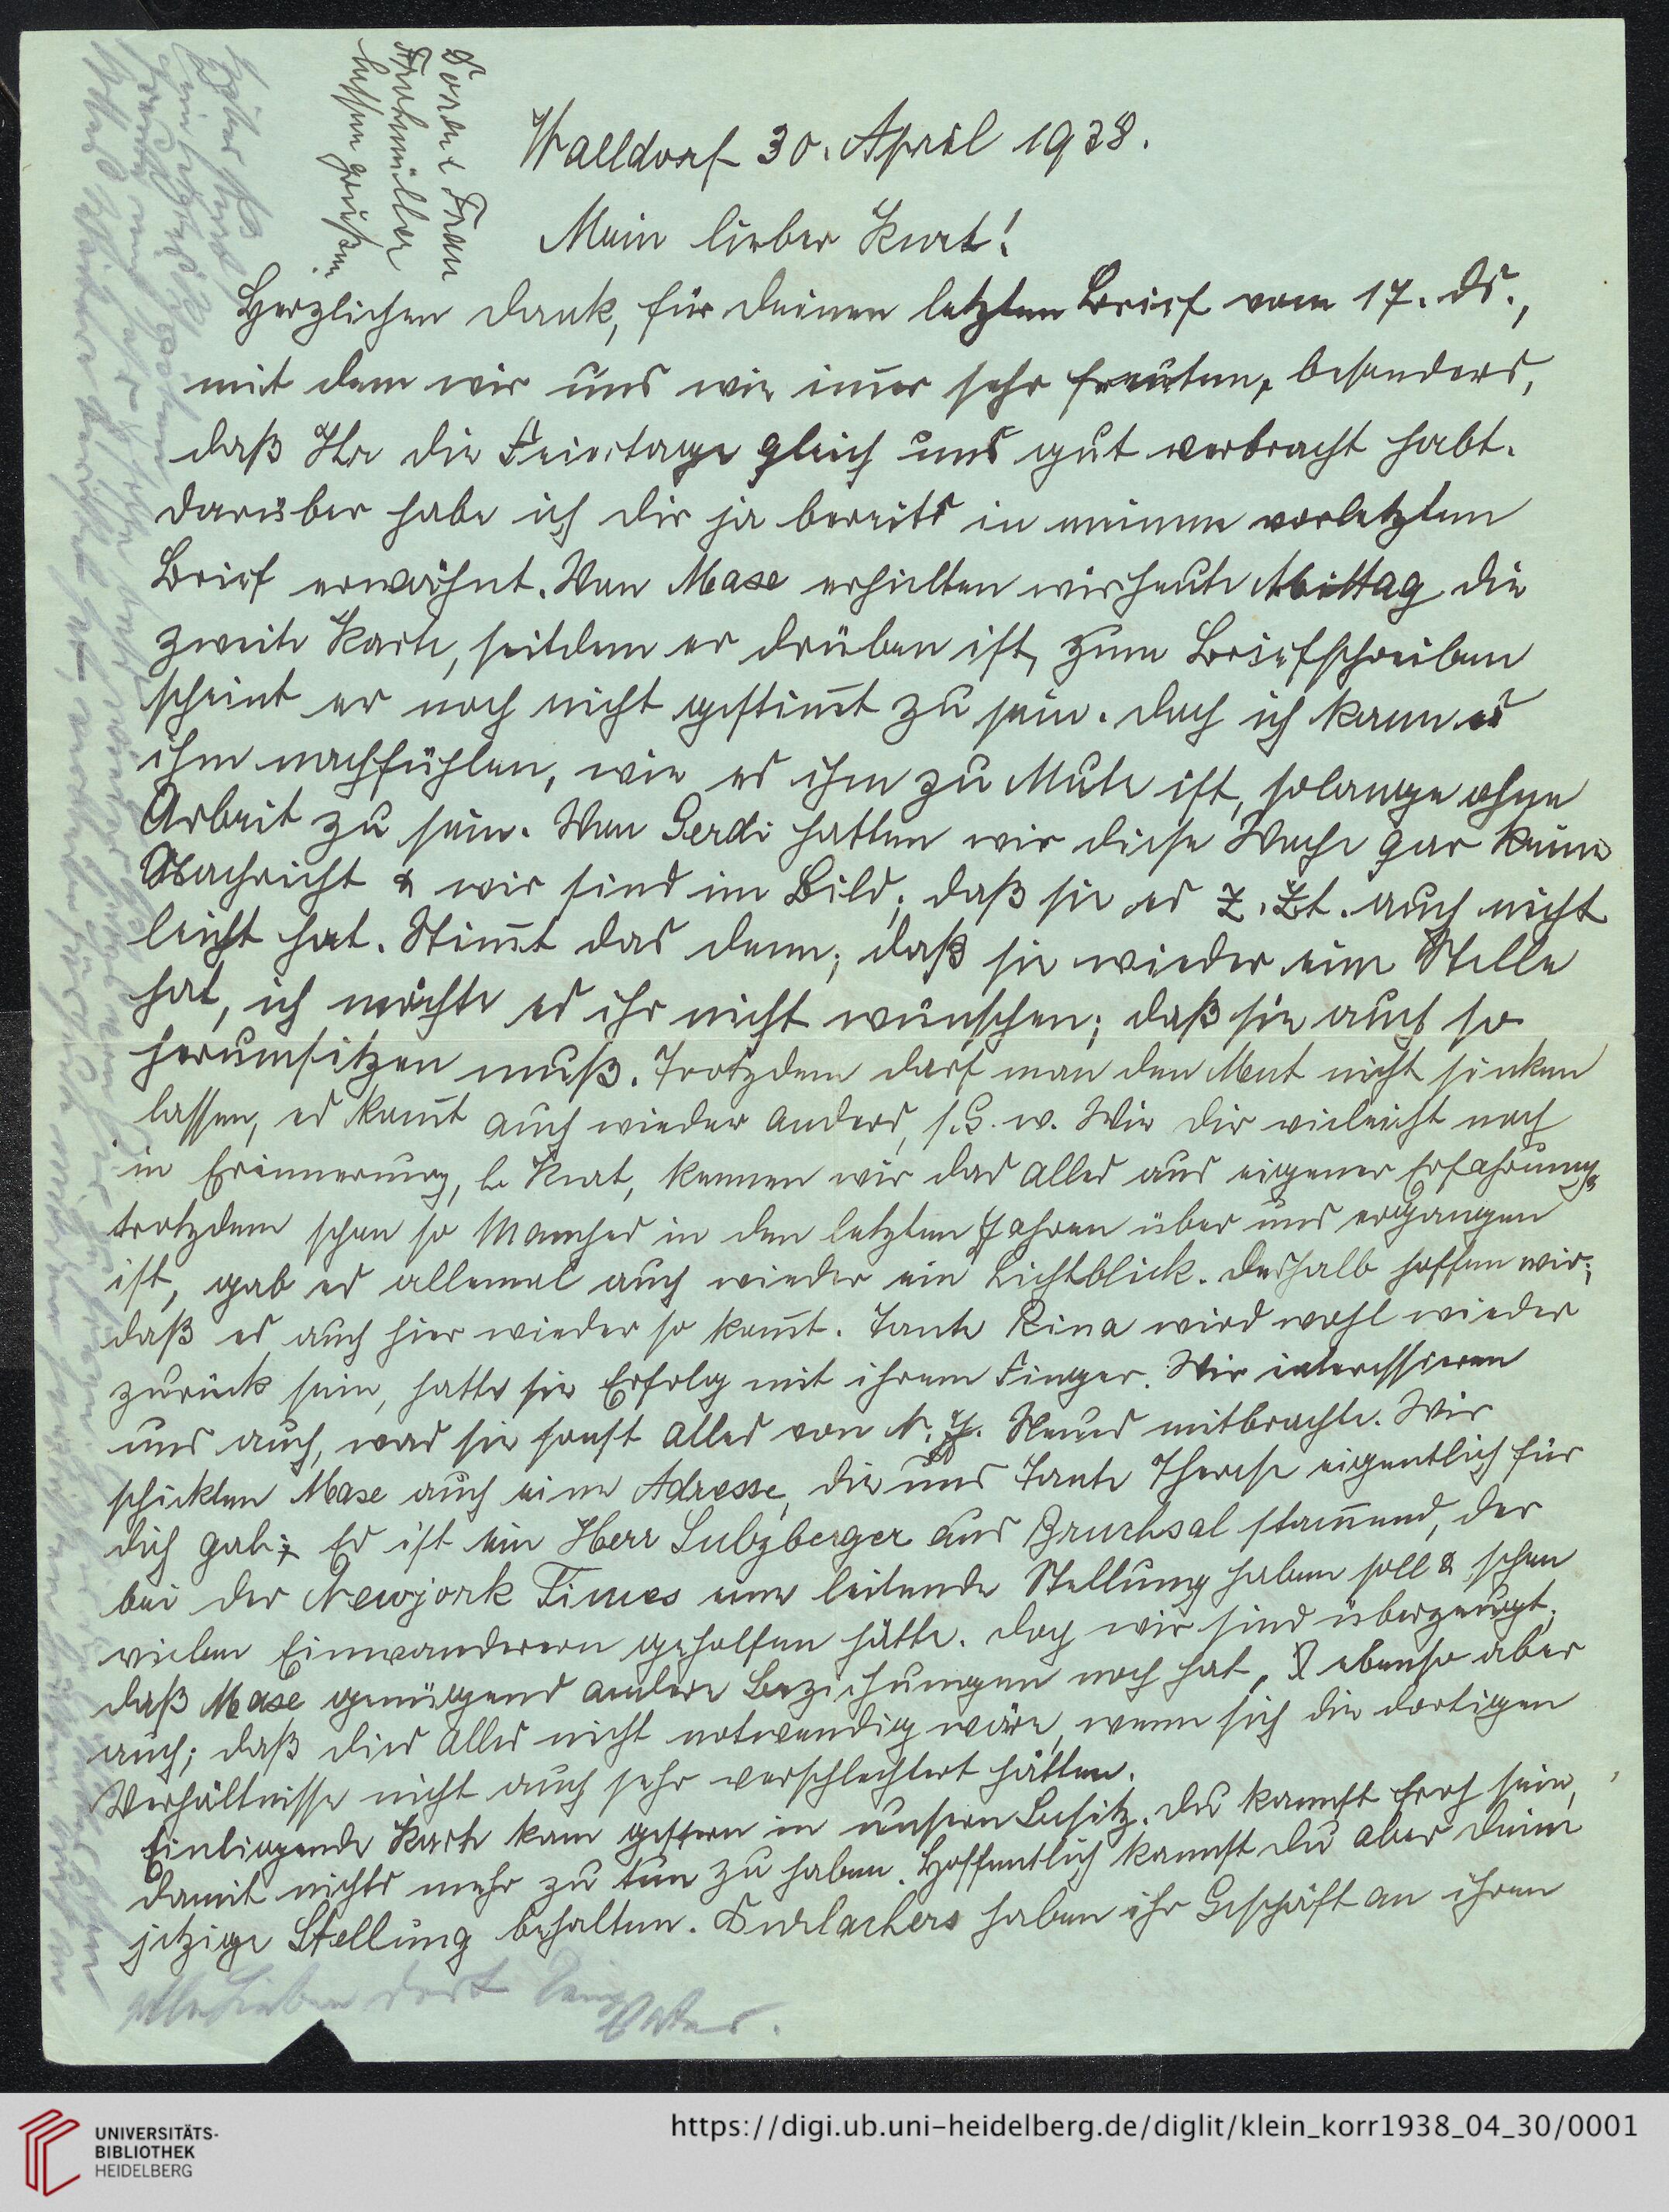 Walldorf 30. April 1938.
Mein lieber Kurt!
Herzlichen Dank, für Deinen letzten Brief vom 17. ds.,
mit dem wir uns wie im̄er sehr freuten, besonders,
daß Ihr die Feiertage gleich uns gut verbracht habt.
Darüber habe ich Dir ja bereits in meinem vorletzten
Brief erwähnt. Von Mase erhielten wir heute Mittag die
zweite Karte, seitdem er drüben ist, zum Briefschreiben
scheint er noch nicht gestim̄t zu sein. Doch ich kann es
ihm nachfühlen, wie es ihm zu Mute ist, solange ohne
Arbeit zu sein. Von Gerdi hatten wir diese Woche gar keine
Nachricht & wir sind im Bild; daß sie es z. Zt. auch nicht
leicht hat. Stim̄t das denn; daß sie wieder eine Stelle
hat, ich möchte es ihr nicht wünschen; daß sie auch so
herumsitzen muß. Trotzdem darf man den Mut nicht sinken
lassen, es kom̄t auch wieder anders, s. G. w. Wie Dir vieleicht noch
in Erinnerung, l. Kurt, kennen wir das alles aus eigener Erfahrung,
trotzdem schon so Manches in den letzten Jahren über uns ergangen
ist, gab es allemal auch wieder ein Lichtblick. Deshalb hoffen wir;
daß es auch hier wieder so kom̄t. Tante Rina wird wohl wieder
zurück sein, hatte sie Erfolg mit ihrem Finger. Wir interessieren
uns auch, was sie sonst alles von N. Y. Neues mitbrachte. Wir
schickten Mase auch eine Adresse, die uns Tante Therese eigentlich für
Dich gab; Es ist ein Herr Sulzberger aus Bruchsal stam̄end, der
bei der Newjork Times eine leitende Stellung haben soll & schon
vielen Einwanderern geholfen hätte. Doch wir sind überzeugt;
daß Mase genügend andere Beziehungen noch hat, & ebenso aber
auch; daß dies alles nicht notwendig wäre, wenn sich die dortigen
Verhältnisse nicht auch sehr verschlechtert hätten.
Einliegende Karte kam gestern in unsern Besitz. Du kannst froh sein,
damit nichts mehr zu tun zu haben. Hoffentlich kannst Du aber Deine
jetzige Stellung behalten. Durlachers haben ihr Geschäft an ihren
Frau
lassen grüßen
Lieber Kurt
alle Lieben dort Dein
Vater.
UNIVERSITÄTS-
BIBLIOTHEK
HEIDELBERG
https://digi.ub.uni-heidelberg.de/diglit/klein_korr1938_04_30/0001